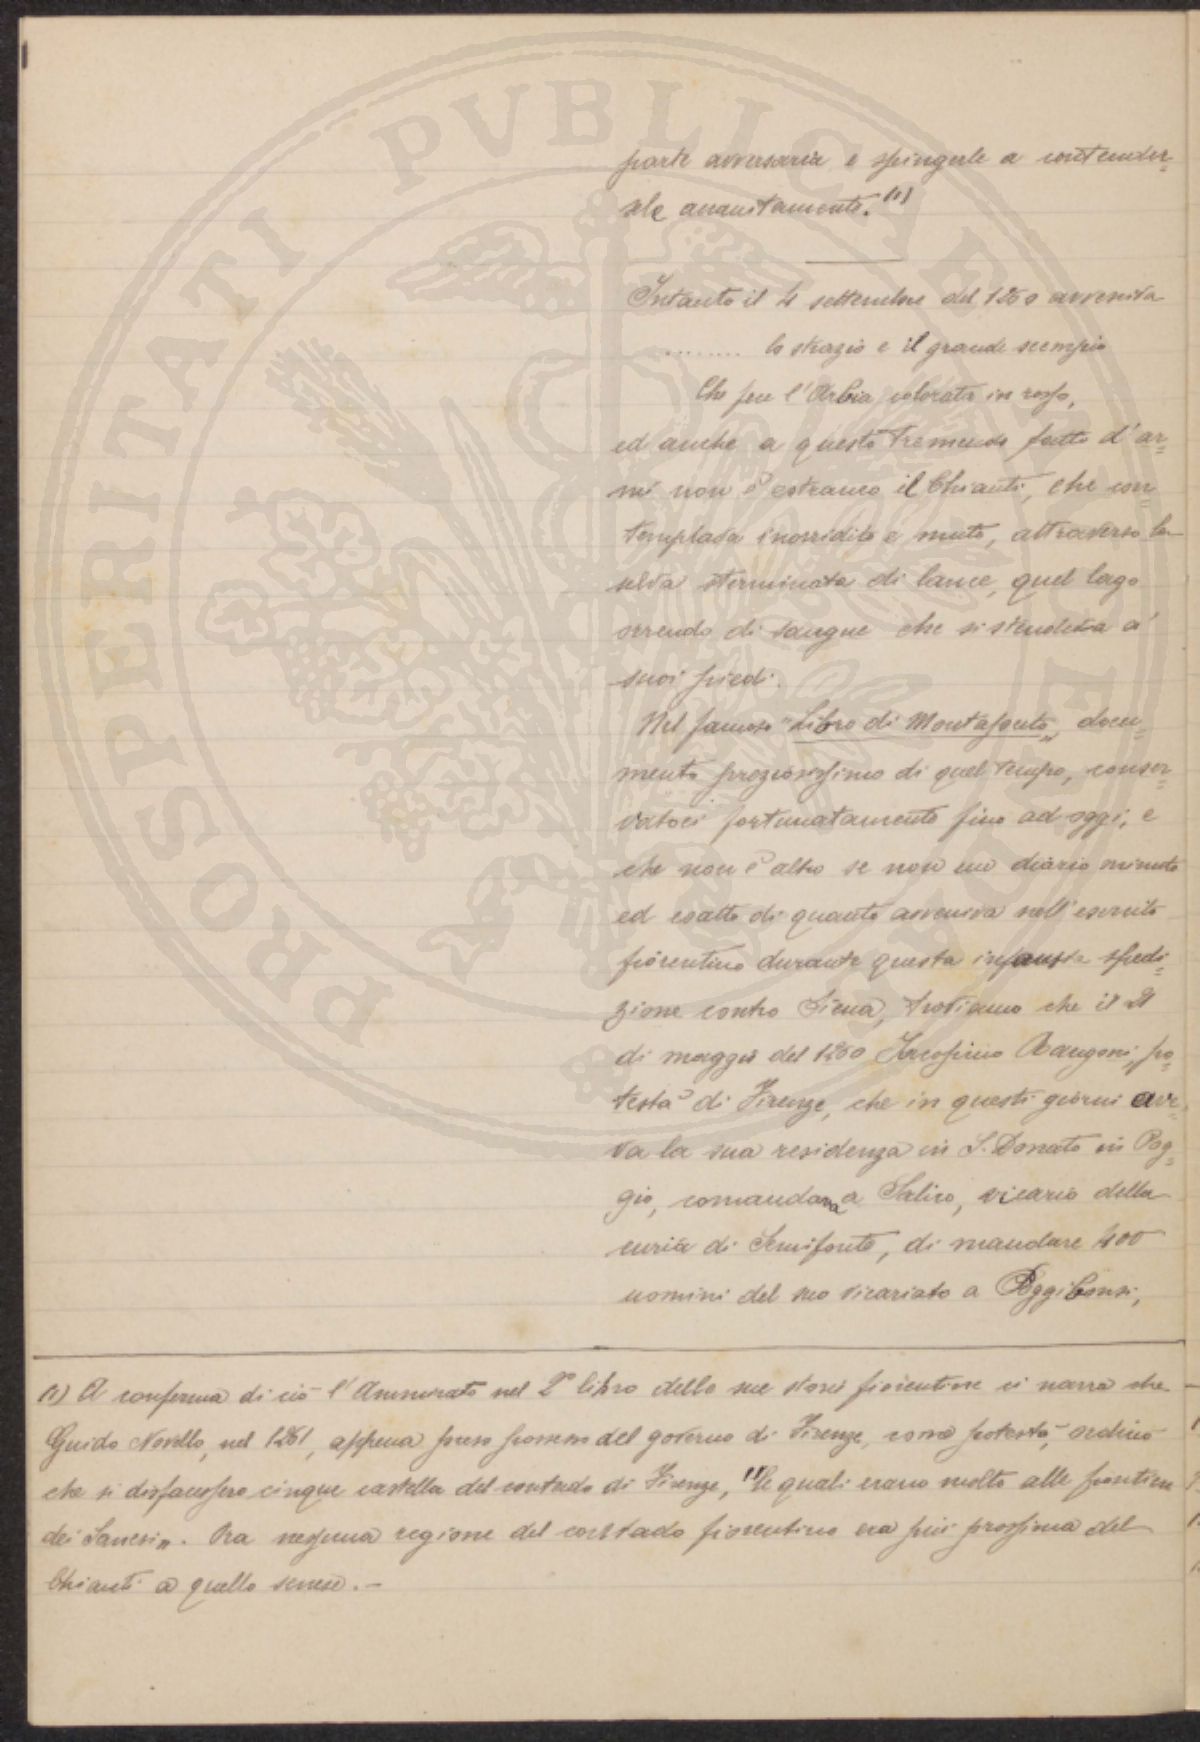 parte avversaria e spingerle a contender=
sele accanitamente. (1)
Intanto il 4 settembre del 1260 avveniva
......... lo strazio e il grande scempio
Che fece l'Arbia colorata in rosso,
ed anche a questo tremendo fatto d'ar=
mi non è estraneo il Chianti, che con=
templava inorridito e muto, attraverso la
selva sterminata di lance, quel lago
orrendo di sangue che si stendeva a'
suoi piedi.
Nel famoso "Libro di Montaperto„ docu=
mento preziosissimo di quel tempo, conser=
vatoci fortunatamente fino ad oggi, e
che non è altro se non un diario minuto
ed esatto di quanto avveniva nell'esercito
fiorentino durante questa infausta spedi=
zione contro Siena, troviamo che il 21
di maggio del 1260 Jacopino Rangoni, po=
testà di Firenze, che in questi giorni ave=
va la sua residenza in S. Donato in Pog=
gio, comandava a Salico, vicario della
curia di Semifonte, di mandare 400
uomini del suo vicariato a Poggibonsi,
(1) A conferma di ciò l'Ammirato nel 2° libro delle sue storie fiorentine ci narra che
Guido Novello, nel 1261, appena preso possesso del governo di Firenze, come potestà, ordinò
che si disfacessero cinque castella del contado di Firenze, "le quali erano molto alle frontiere
dei Sanesi„. Ora nessuna regione del contado fiorentino era più prossima del
Chianti a quello senese. -
PROSPERITATI PVBLICAE